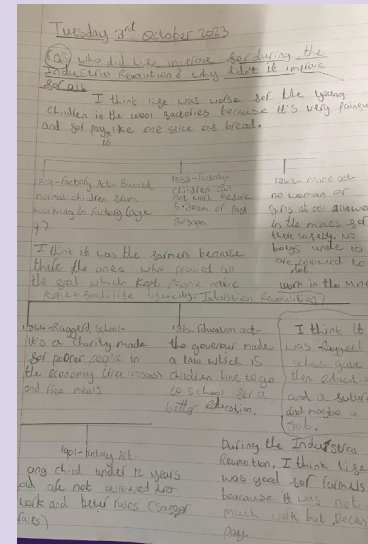 Tuesday 3rd October 2023
EQ: who did life improve for during the
Industrial Revoution & why didn't it improve
for all
I think life was worse for the young
children in the wool factories because it's very
and get pay like one slice of bread.
1819-factory act- Banned
normal children from
working in factory (age
9)
1833-factory-
children can
not work before
5:30am or past
8:30pm
1842-mine act-
no woman or
girls at all allowed
in the mines for
there safety. No
boys under 10
are allowed to
work in the Mine
I think it was the farmers because
there the ones who all
the food which kept people active
1844-Raggerd school-
it's a charity made
for poorer people in
the economy free lessons
and free meals
Education act-
the goverour made
a law which is
children have to go
to school for a
better education.
I think it
was Raggerd
school gave
them education
and a
and maybe a
Job.
1901-factory act-
any child under 12 years
old are not allowed to
work and better rules (safer
rules)
During the Industrea
Revoution, I think life
was good for farmers
beacause it was not
much work but Decent
pay.